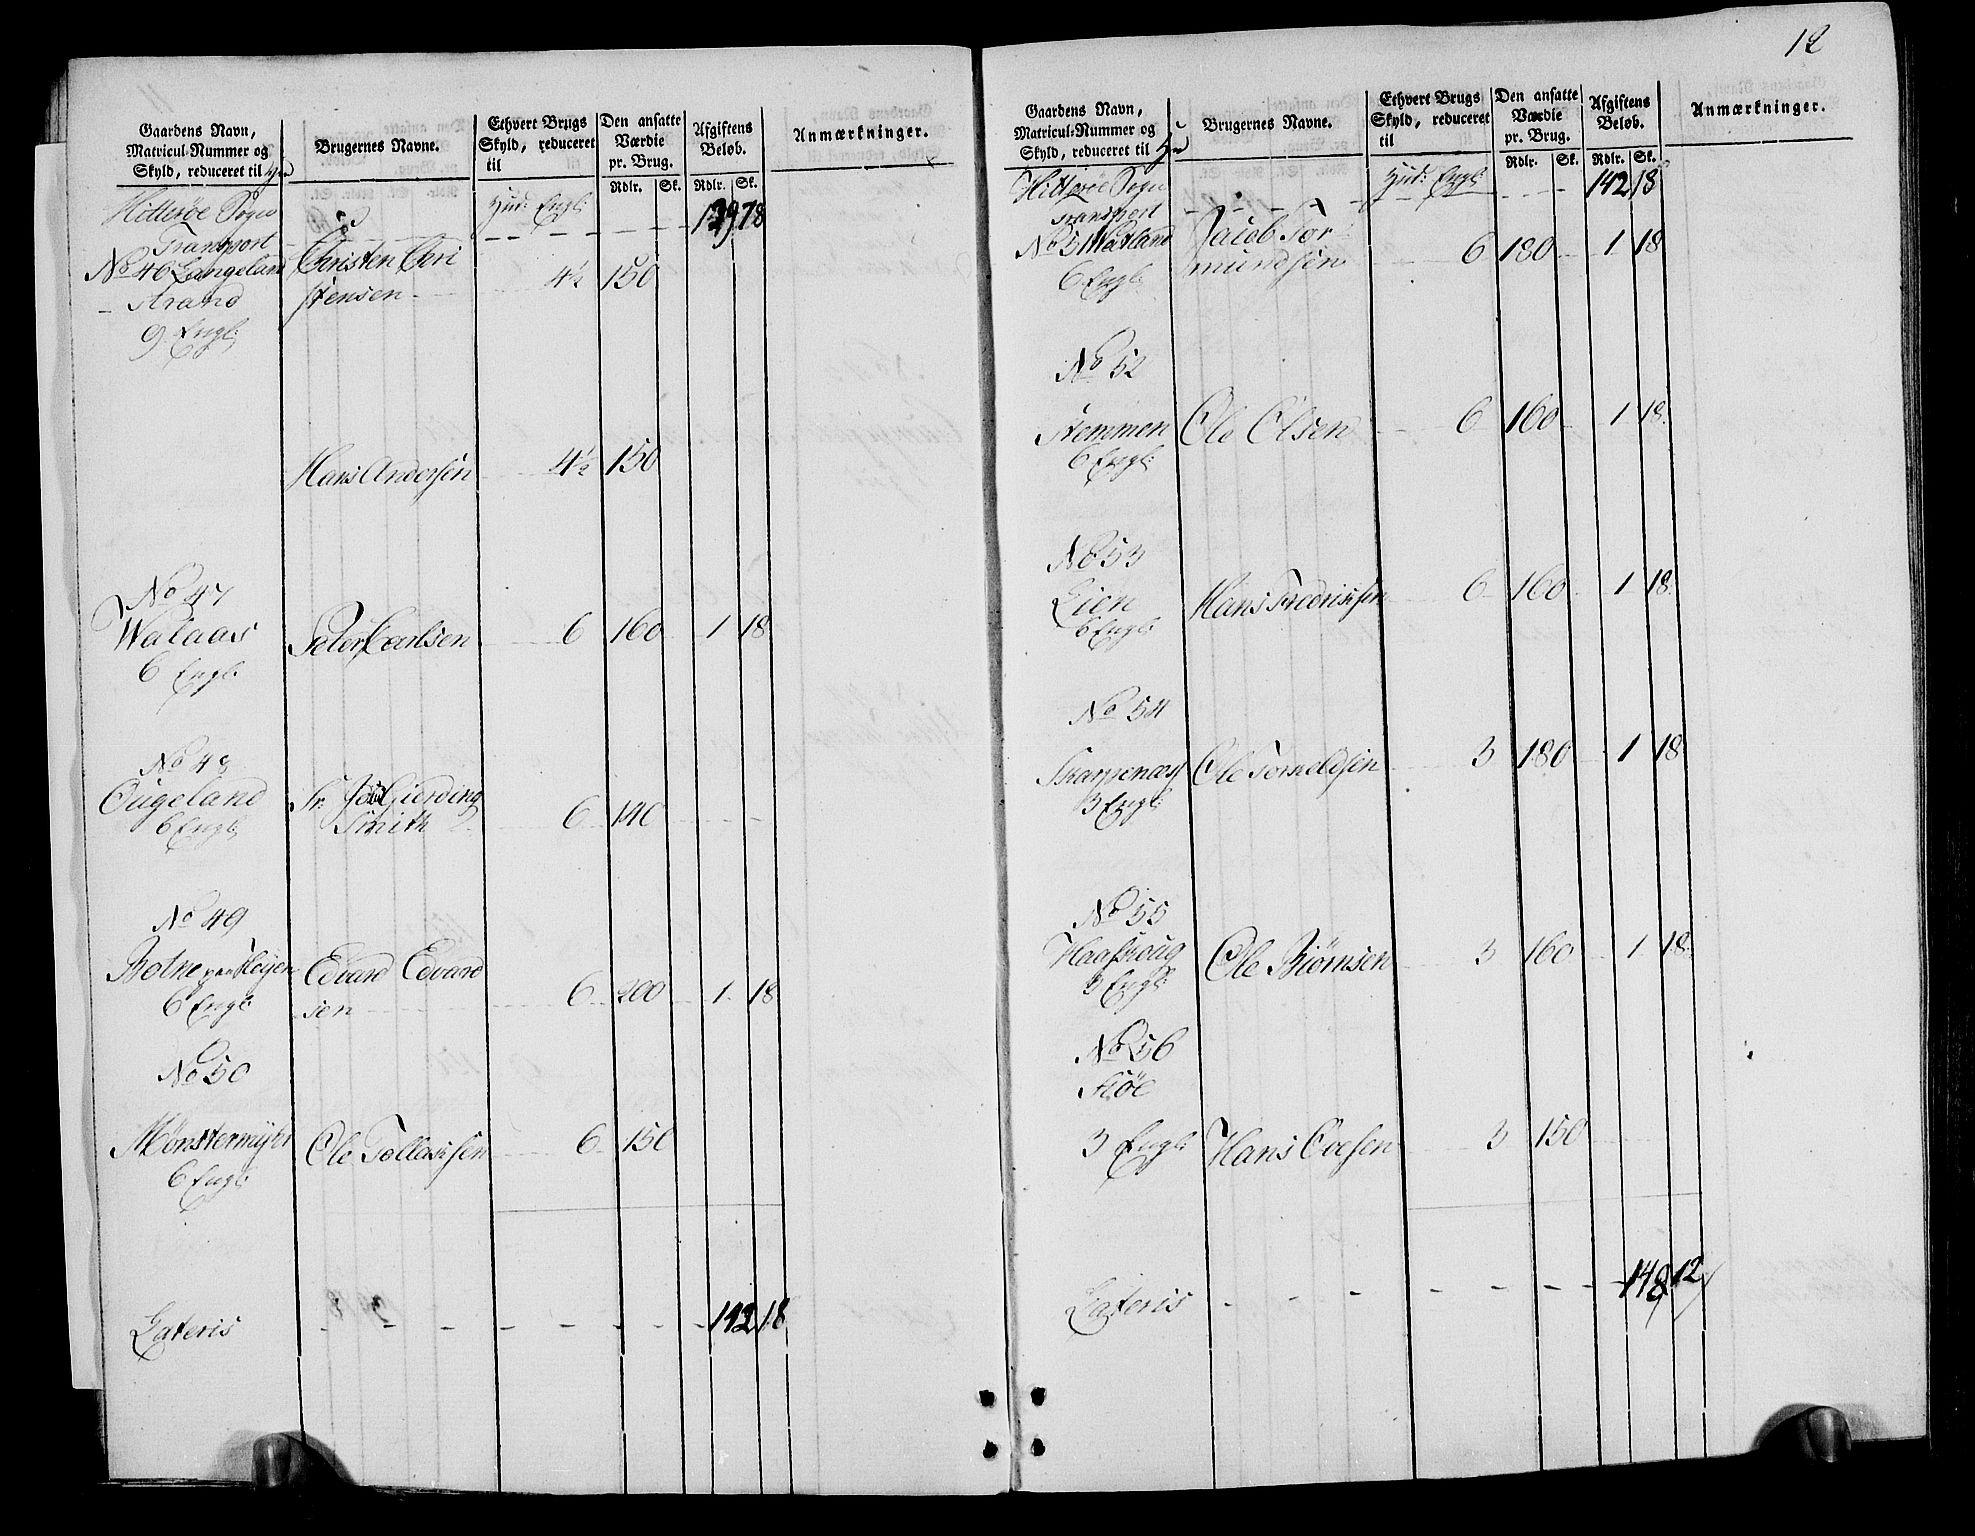 Gaardens Navn, Matricul-Nummer og Skyld, reduceret til
Brugernes Navne.
Ethvert Brugs Skyld, reduceret til
Den ansatte Værdie pr. Brug.
Rdlr. Sk.
Afgiftens Beløb.
Rdlr. Sk.
Anmærkninger.
Hitterøe Sogn Hud: Engl:
Transport 139 78
No 46 Langeland Christen Chri
Strand stensen 4½ 150
9 Engl:
Hans Andersen 4½ 150
No 47
Walaas Peter Carlsen 6 160 1 18
6 Engl:
No 48
Ougeland Sr. Gierding
6 Engl: Smith 6 140
No 49
Botne paa Edvard Edvard
6 Engl: sen 6 200 1 18
No 50
Mønstermyhr Ole Tollaksen 6 150
6 Engl:
Lateris 142 18
12
Gaardens Navn, Matricul-Nummer og Skyld, reduceret til
Brugernes Navne.
Ethvert Brugs Skyld, reduceret til
Den ansatte Værdie pr. Brug.
Rdlr. Sk.
Afgiftens Beløb.
Rdlr. Sk.
Anmærkninger.
Hitterøe Sogn Hud: Engl:
Transport 142 18
No 51 Watland Jacob Tor
6 Engl: mundsen 6 180 1 18
No 52
Stemmen Ole Olsen 6 160 1 18
6 Engl:
No 53
Lien Hans Fredriksen 6 160 1 18
6 Engl:
No 54
Skarpenæs Ole Torkeldsen 3 180 1 18
3 Engl:
No 55
Haaskoug Ole Biørnsen 3 160 1 18
3 Engl:
No 56
3 Engl: Hans Ovesen 3 150
Lateris 148 12